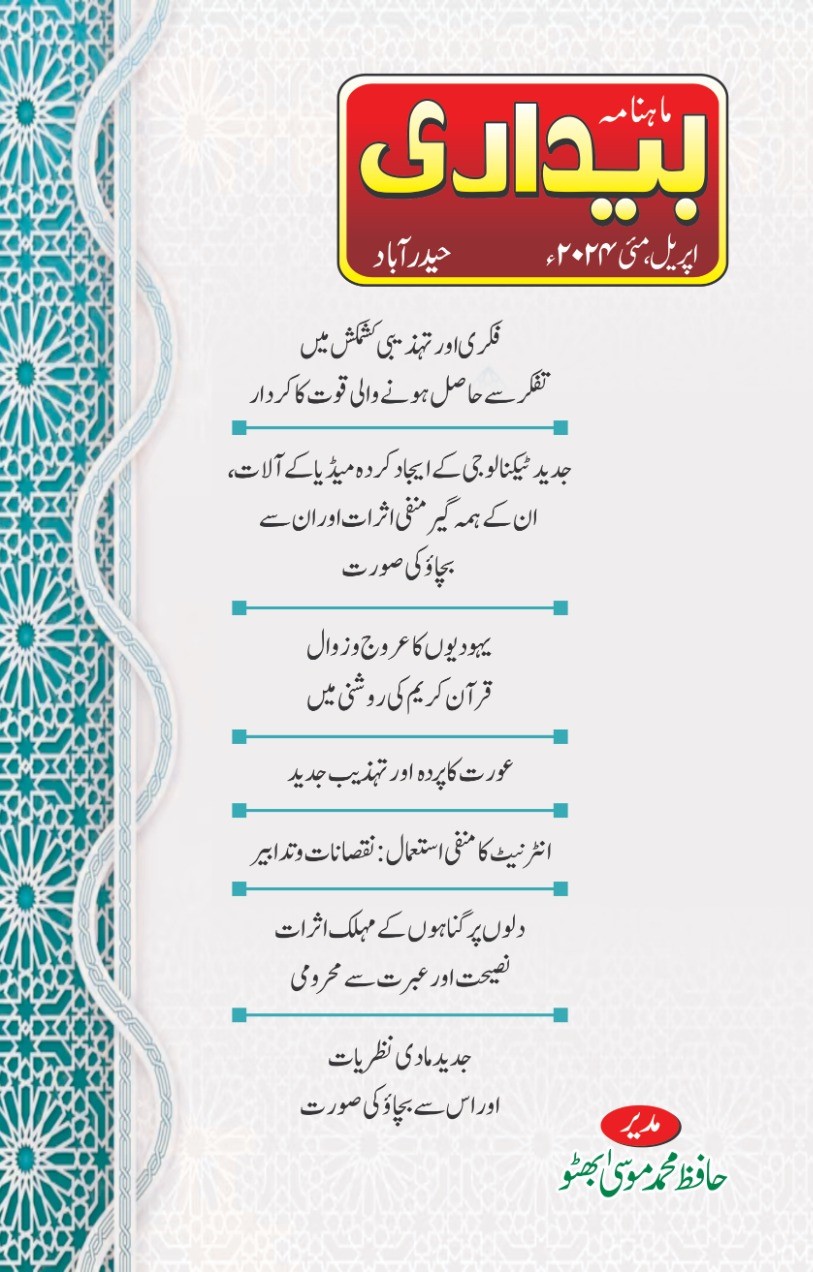 ماہنامہ
بیداری
اپریل، مئی ۲۰۲۴ء حیدرآباد
فکری اور تہذیبی کشمکش میں
تفکر سے حاصل ہونے والی قوت کا کردار
جدید ٹیکنالوجی کے ایجاد کردہ میڈیا کے آلات،
ان کے ہمہ گیر منفی اثرات اور ان سے
بچاؤ کی صورت
یہودیوں کا عروج و زوال
قرآن کریم کی روشنی میں
عورت کا پردہ اور تہذیب جدید
انٹرنیٹ کا منفی استعمال: نقصانات و تدابیر
دلوں پر گناہوں کے مہلک اثرات
نصیحت اور عبرت سے محرومی
جدید مادی نظریات
اور اس سے بچاؤ کی صورت
مدیر
حافظ محمد موسیٰ بھٹو